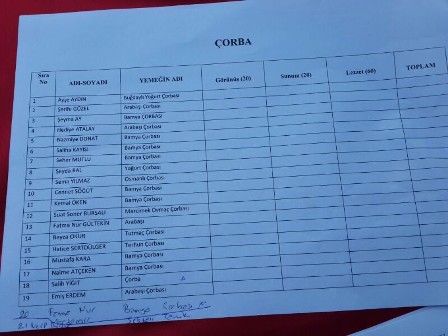 ÇORBA
Sıra No ADI-SOYADI YEMEĞİN ADI Görünüş (20) Sunum (20) Lezzet (60) TOPLAM
1 Ayşe AYDIN Buğdaylı Yoğurt Çorbası
2 Şerife GÜZEL Arabaşı Çorbası
3 Şeyma AY Bamya ÇORBASI
4 Hediye ATALAY Arabaşı Çorbası
5 Nazmiye DONAT Bamya Çorbası
6 Saliha KAYIŞ Bamya Çorbası
7 Seher MUTLU Bamya Çorbası
8 Şeyda BAL Yoğurt Çorbası
9 Sema YILMAZ Osmanlı Çorbası
10 Cennet SÖĞÜT Bamya Çorbası
11 Kemal ÖKEN Bamya Çorbası
12 Suat Soner BURSALI Mercimek Ovmaç Çorbası
13 Fatma Nur GÜLTEKİN Arabaşı
14 Beyza OKUR Tutmaç Çorbası
15 Hatice SERTDÜLGER Tarhun Çorbası
16 Mustafa KARA Bamya Çorbası
17 Naime ATÇEKEN Bamya Çorbası
18 Salih YİĞİT Çorba
19 Emiş ERDEM Arabaşı Çorbası
20 Nur Bamya Çorbası
21